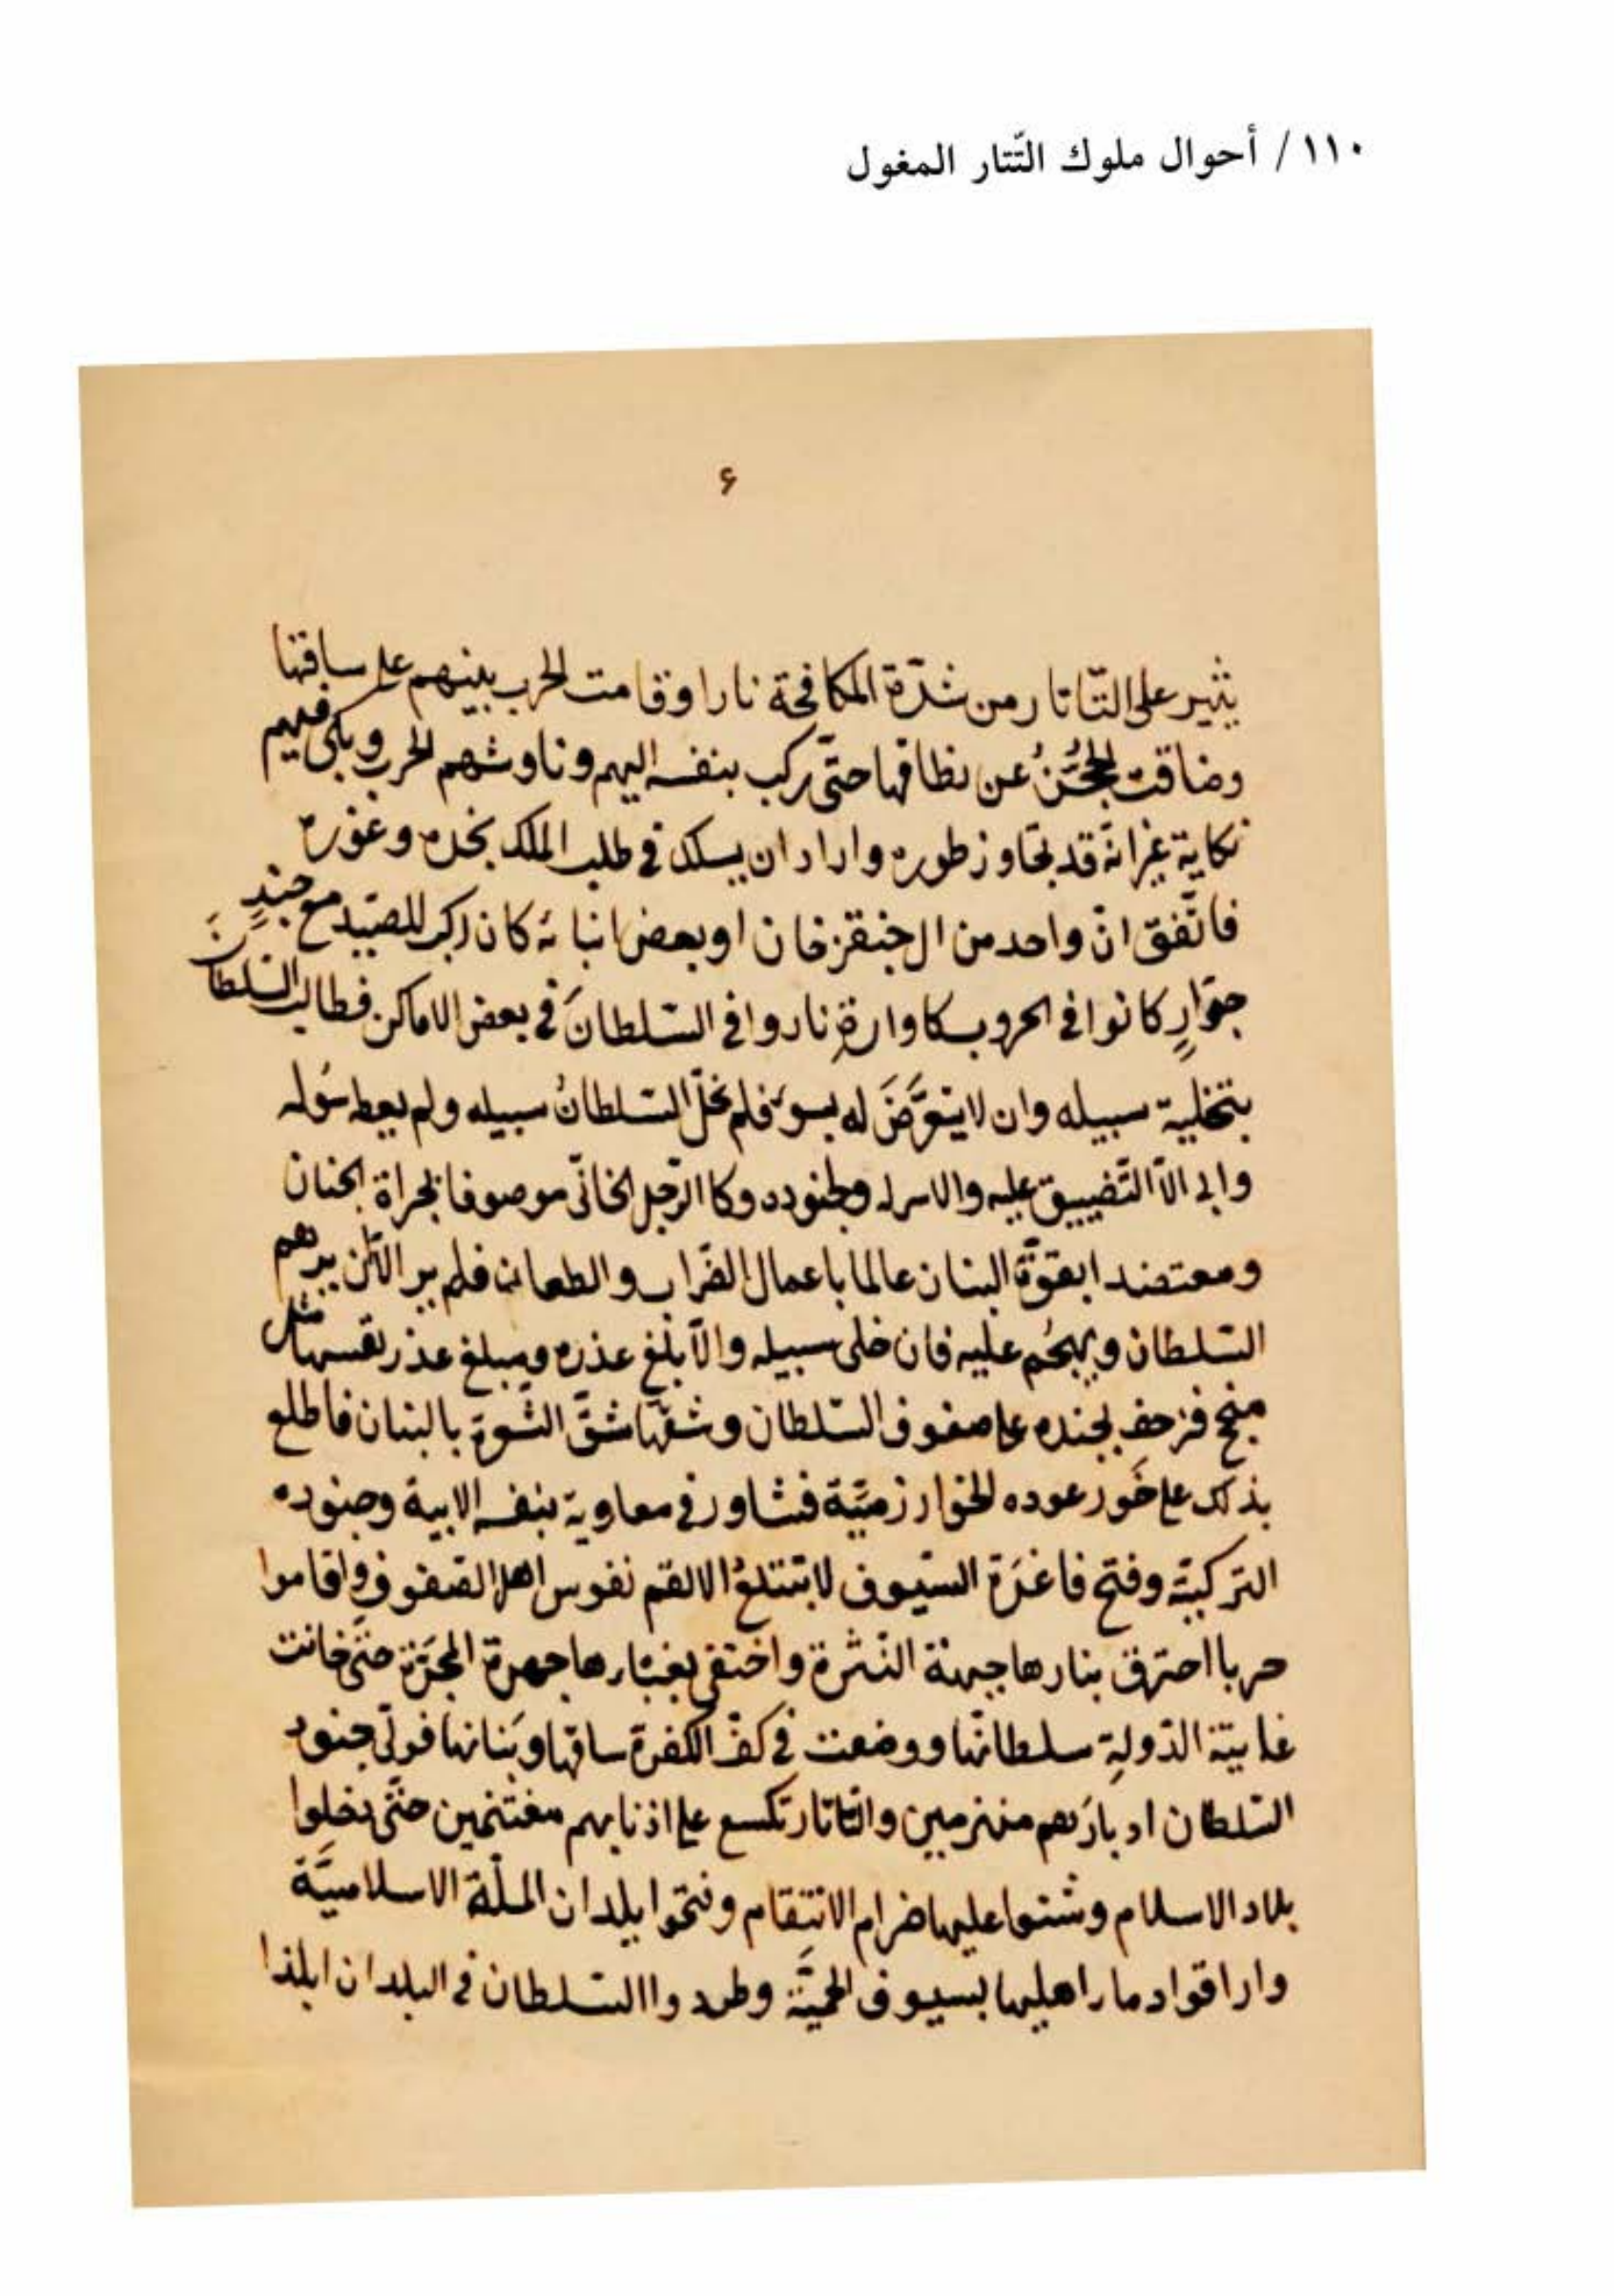 ١١٠ / أحوال ملوك التّتار المغول
۶
يثير على التّاتار من شدّة المكافحة نارا وقامت الحرب بينهم على ساقتها
وضاقت الحجُزُ عن نطاقها حتّى ركب بنفسه اليهم وناوشهم الحرب وبكى فيهم
نكاية غير انّه قد تجاوز طوره واراد ان يسلك فى طلب الملك نجده وغوره
فاتّفق انّ واحد من ال جنقزخان او بعض انبائه كان ركب للصّيد مع جندٍ
جرّارٍ كانوا فى الحروب كاوارة نار وافى السّلطانَ فى بعض الاماكن فطالب السّلطانَ
بتخلية سبيله وان لا يتعرَّضَ له بسوء فلم يخلّ السّلطانُ سبيله ولم يعط سُوله
وابى الّا التّضييق عليه والاسر له ولجنوده وكا الرّجل الخانىّ موصوفا بجراة الجنان
ومعتضدا بقوّة البنان عالما باعمال الضّراب والطعان فلم ير الّا ان يرهم
السّلطان ويهجُم عليه فان خلى سبيله والّا بلّغ عذره ومبلغ عذر نفسها مثل
منجح فزحف بجنده على صفوف السّلطان وشقّها شقّ الشّوة بالبنان فاطلع
بذلك على خَور عوده الخوارزميَّة فشاور فى معاوية بنفسه الابية وجنوده
التركيّة وفتح فاغرَة السّيوف لا تبتلعُ الا لقم نفوس اهل الصّفوف واقاموا
حربا احترق بنارها جبهة النّثرة واختفى بغبارها جهرة المجرّة حتَّى خانت
غابيّة الدّولة سلطانها ووضعت فى كفّ الكفرة ساقها وبَنانها فولّى جنود
السّلطان ادبارَهم منهزمين والتّاتار تكسع على اذنابهم مغتنمين حتَّى دخلوا
بلاد الاسلام وشنّوا عليها ضرام الانتقام وفتحوا بلدان الملّة الاسلاميَّة
واراقوا دمار اهليها بسيوف الحميَّة وطردوا السّلطان فى البلدان ابلذا